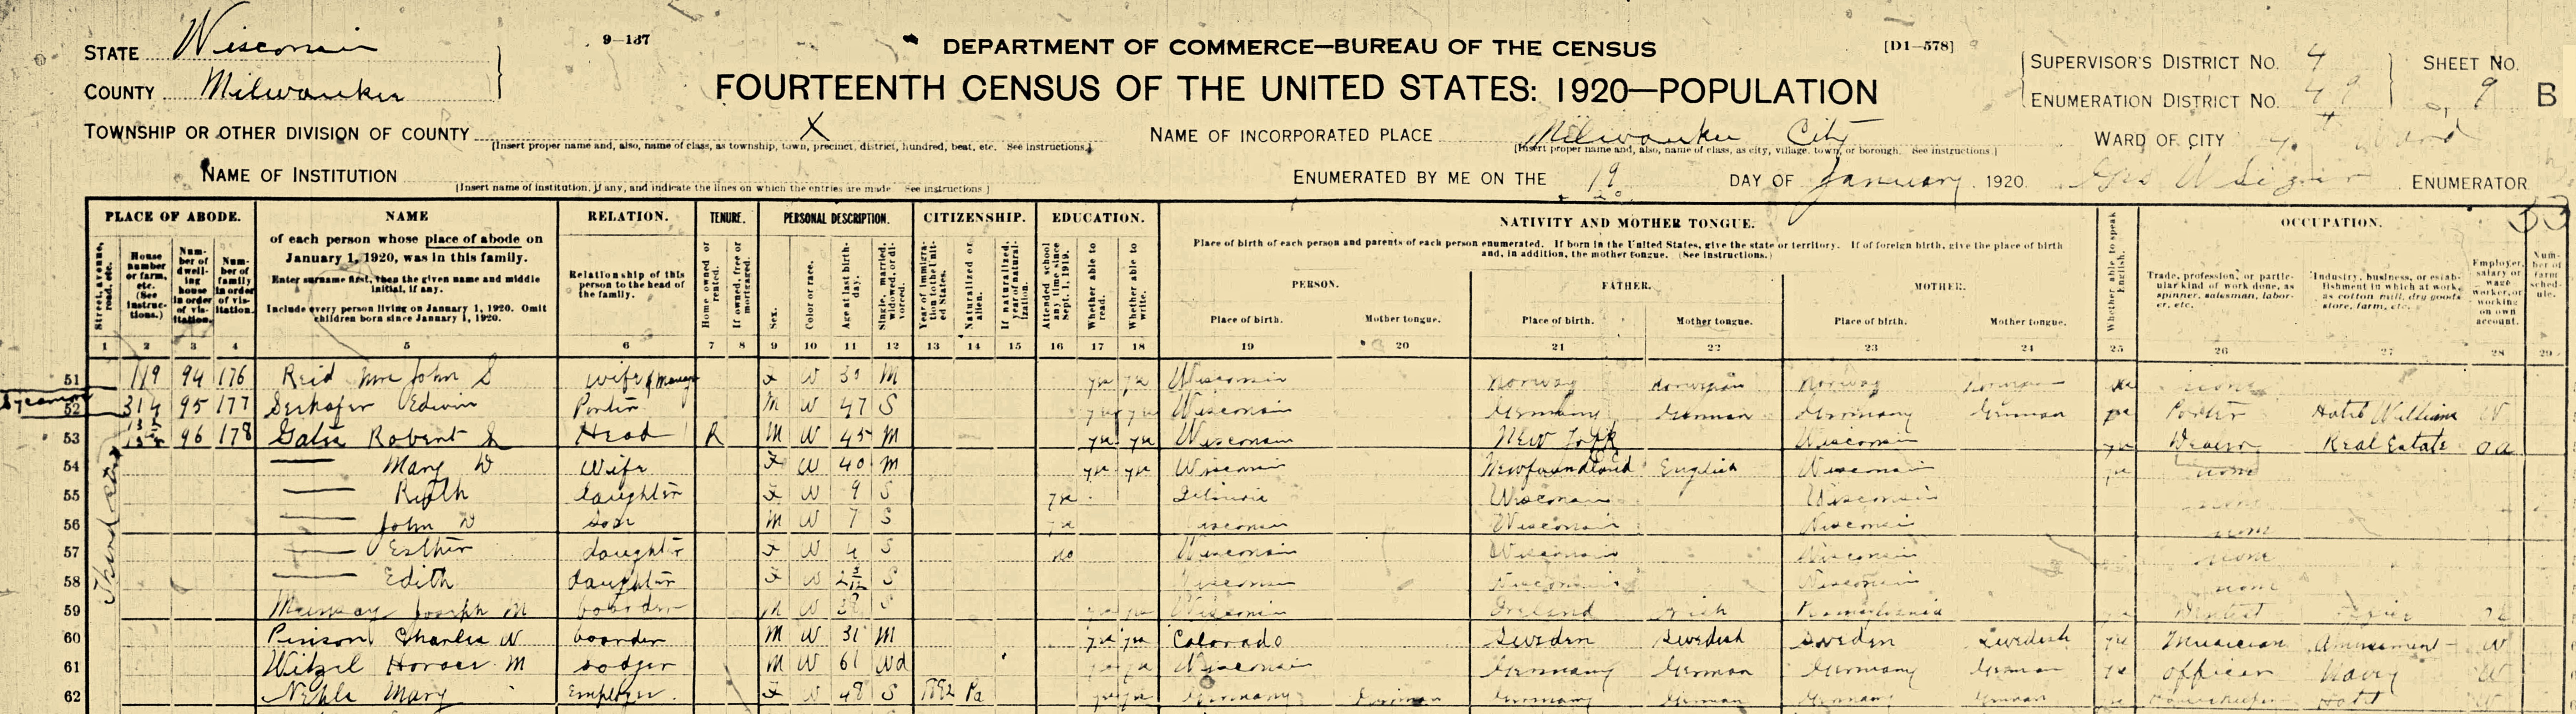 STATE Wisconsin 9-137 DEPARTMENT OF COMMERCE—BUREAU OF THE CENSUS [D1-578] SUPERVISOR'S DISTRICT No. 4 SHEET No.
COUNTY Milwaukee FOURTEENTH CENSUS OF THE UNITED STATES: 1920—POPULATION ENUMERATION DISTRICT No. 49 9 B
TOWNSHIP OR OTHER DIVISION OF COUNTY X NAME OF INCORPORATED PLACE Milwaukee City WARD OF CITY
[Insert proper name and, also, name of class, as township, town, precinct, district, hundred, beat, etc. See instructions.] [Insert proper name and, also, name of class, as city, village, town, or borough. See instructions.]
NAME OF INSTITUTION ENUMERATED BY ME ON THE 19 DAY OF January, 1920. ENUMERATOR
[Insert name of institution, if any, and indicate the lines on which the entries are made. See instructions.]
PLACE OF ABODE. NAME RELATION. TENURE. PERSONAL DESCRIPTION. CITIZENSHIP. EDUCATION. NATIVITY AND MOTHER TONGUE. OCCUPATION.
Street, avenue, road, etc.
House number or farm, etc. (See instructions.)
Number of dwelling house in order of visitation.
Number of family in order of visitation.
of each person whose place of abode on January 1, 1920, was in this family.
Enter surname first, then the given name and middle initial, if any.
Include every person living on January 1, 1920. Omit children born since January 1, 1920.
Relationship of this person to the head of the family.
Home owned or rented.
If owned, free or mortgaged.
Sex.
Color or race.
Age at last birthday.
Single, married, widowed, or divorced.
Year of immigration to the United States.
Naturalized or alien.
If naturalized, year of naturalization.
Attended school any time since Sept. 1, 1919.
Whether able to read.
Whether able to write.
Place of birth of each person and parents of each person enumerated. If born in the United States, give the state or territory. If of foreign birth, give the place of birth
and, in addition, the mother tongue. (See instructions.)
PERSON. FATHER. MOTHER.
Place of birth. Mother tongue. Place of birth. Mother tongue. Place of birth. Mother tongue.
Whether able to speak English.
Trade, profession, or particular kind of work done, as spinner, salesman, laborer, etc.
Industry, business, or establishment in which at work, as cotton mill, dry goods store, farm, etc.
Employer, salary or wage worker, or working on own account.
Number of farm schedule.
1 2 3 4 5 6 7 8 9 10 11 12 13 14 15 16 17 18 19 20 21 22 23 24 25 26 27 28 29
51 119 94 176 Reid Mrs John S wife F W 30 M yes yes Wisconsin Norway Norwegian Norway Norwegian yes none
52 314 95 177 Edwin Porter M W 47 S yes yes Wisconsin Germany German Germany German yes Porter Hotel William W
53 96 178 Robert Head R M W 45 M yes yes Wisconsin New York Wisconsin yes Real Estate oa
54 Mary D Wife F W 40 M yes yes Wisconsin Newfoundland English Wisconsin yes none
55 Ruth daughter F W 9 S yes Illinois Wisconsin Wisconsin none
56 John D son M W 7 S yes Wisconsin Wisconsin Wisconsin none
57 Esther daughter F W 4 S no Wisconsin Wisconsin Wisconsin none
58 Edith daughter F W S Wisconsin Wisconsin Wisconsin none
59 Joseph M boarder M W S yes yes Wisconsin Ireland Irish Pennsylvania yes Dentist
60 Charles W boarder M W 31 M yes yes Colorado Sweden Swedish Sweden Swedish yes Musician Amusement W
61 Witzel Horace M lodger M W 61 Wd yes yes Wisconsin Germany German Germany German yes officer Navy W
62 Nehls Mary F W 48 S 1892 Pa yes yes Germany German Germany German Germany German yes Housekeeper Hotel W